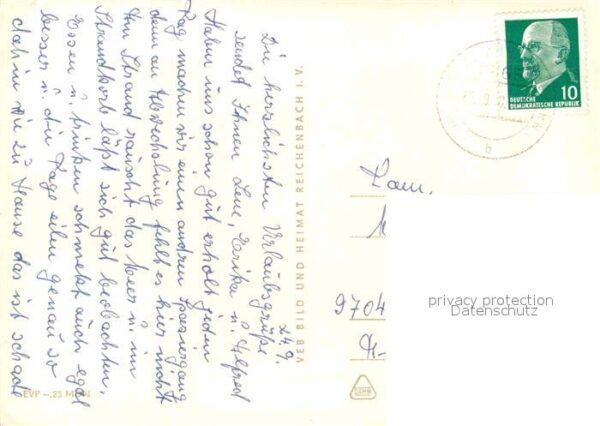 24.9.
Die herzlichsten Urlaubsgrüße
sendet Ihnen Lene, Erika u. Alfred
Haben uns schon gut erholt jeden
Tag machen wir einen andren Spaziergang
denn an Abwechslung fehlt es hier nicht
Am Strand rauscht das Meer u. im
Strandkorb läßt sich gut beobachten.
Essen u. trinken schmeckt auch egal
besser u. die Tage eilen genau so
dahin wie zu Hause das ist schade
VEB BILD UND HEIMAT REICHENBACH I. V.
EVP -,25 MDN
10
DEUTSCHE
DEMOKRATISCHE REPUBLIK
Fam.
9704
privacy protection
Datenschutz